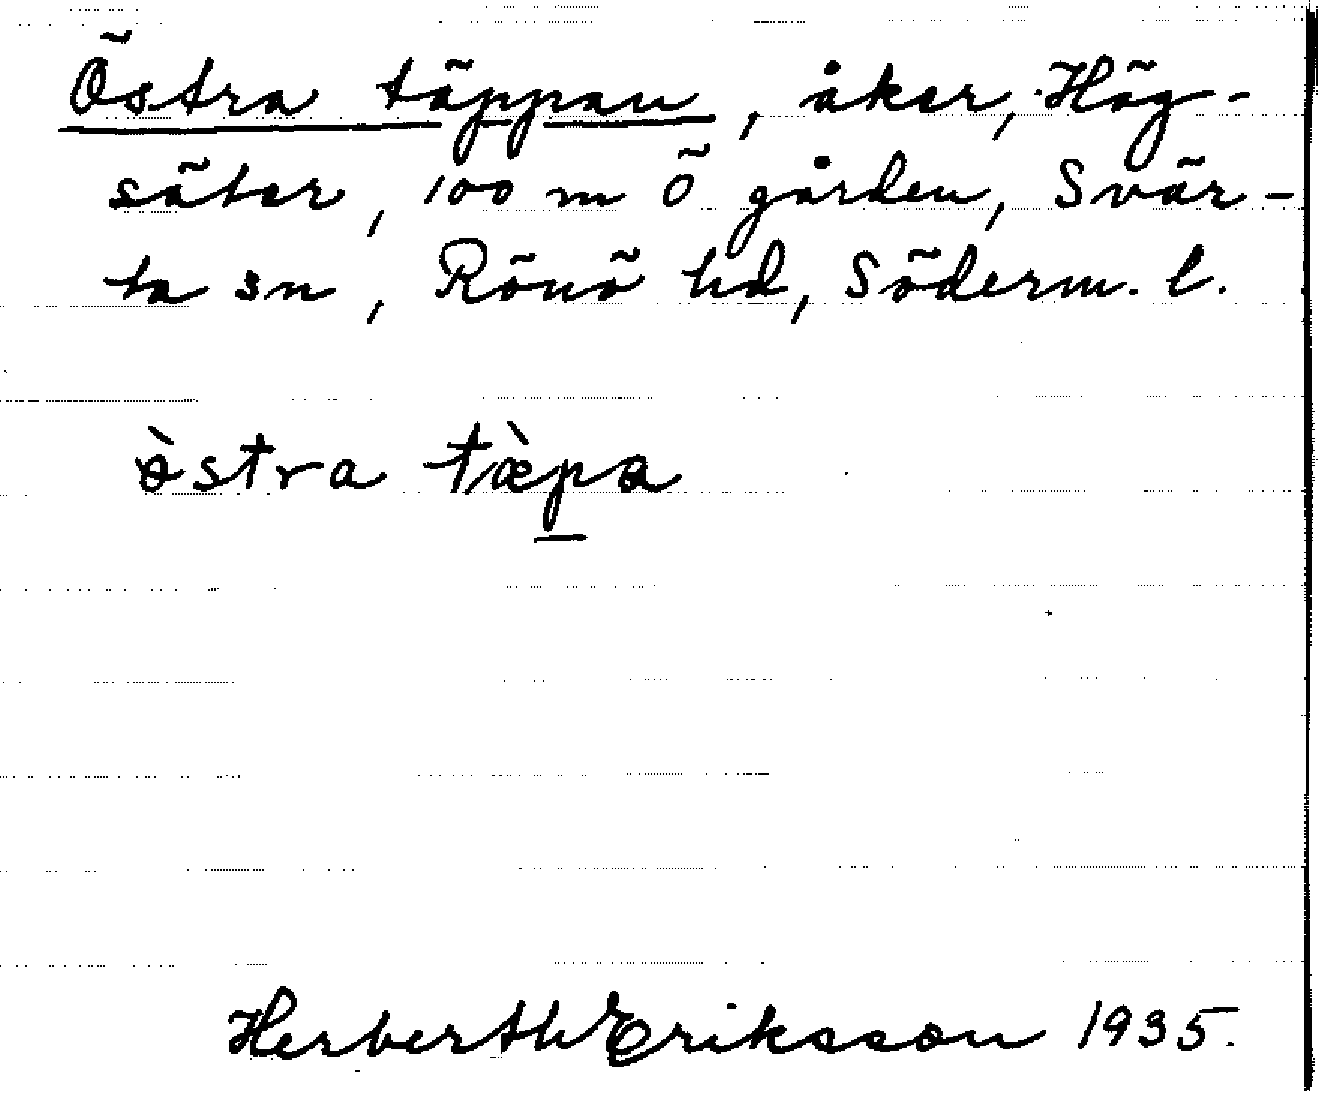 Östra täppan, åker, Hög-
säter, 100 m Ö gården, Svär-
ta sn, Rönö hd, Söderm. l.
ö̀stra tæ̀pa
Herberth Eriksson 1935.